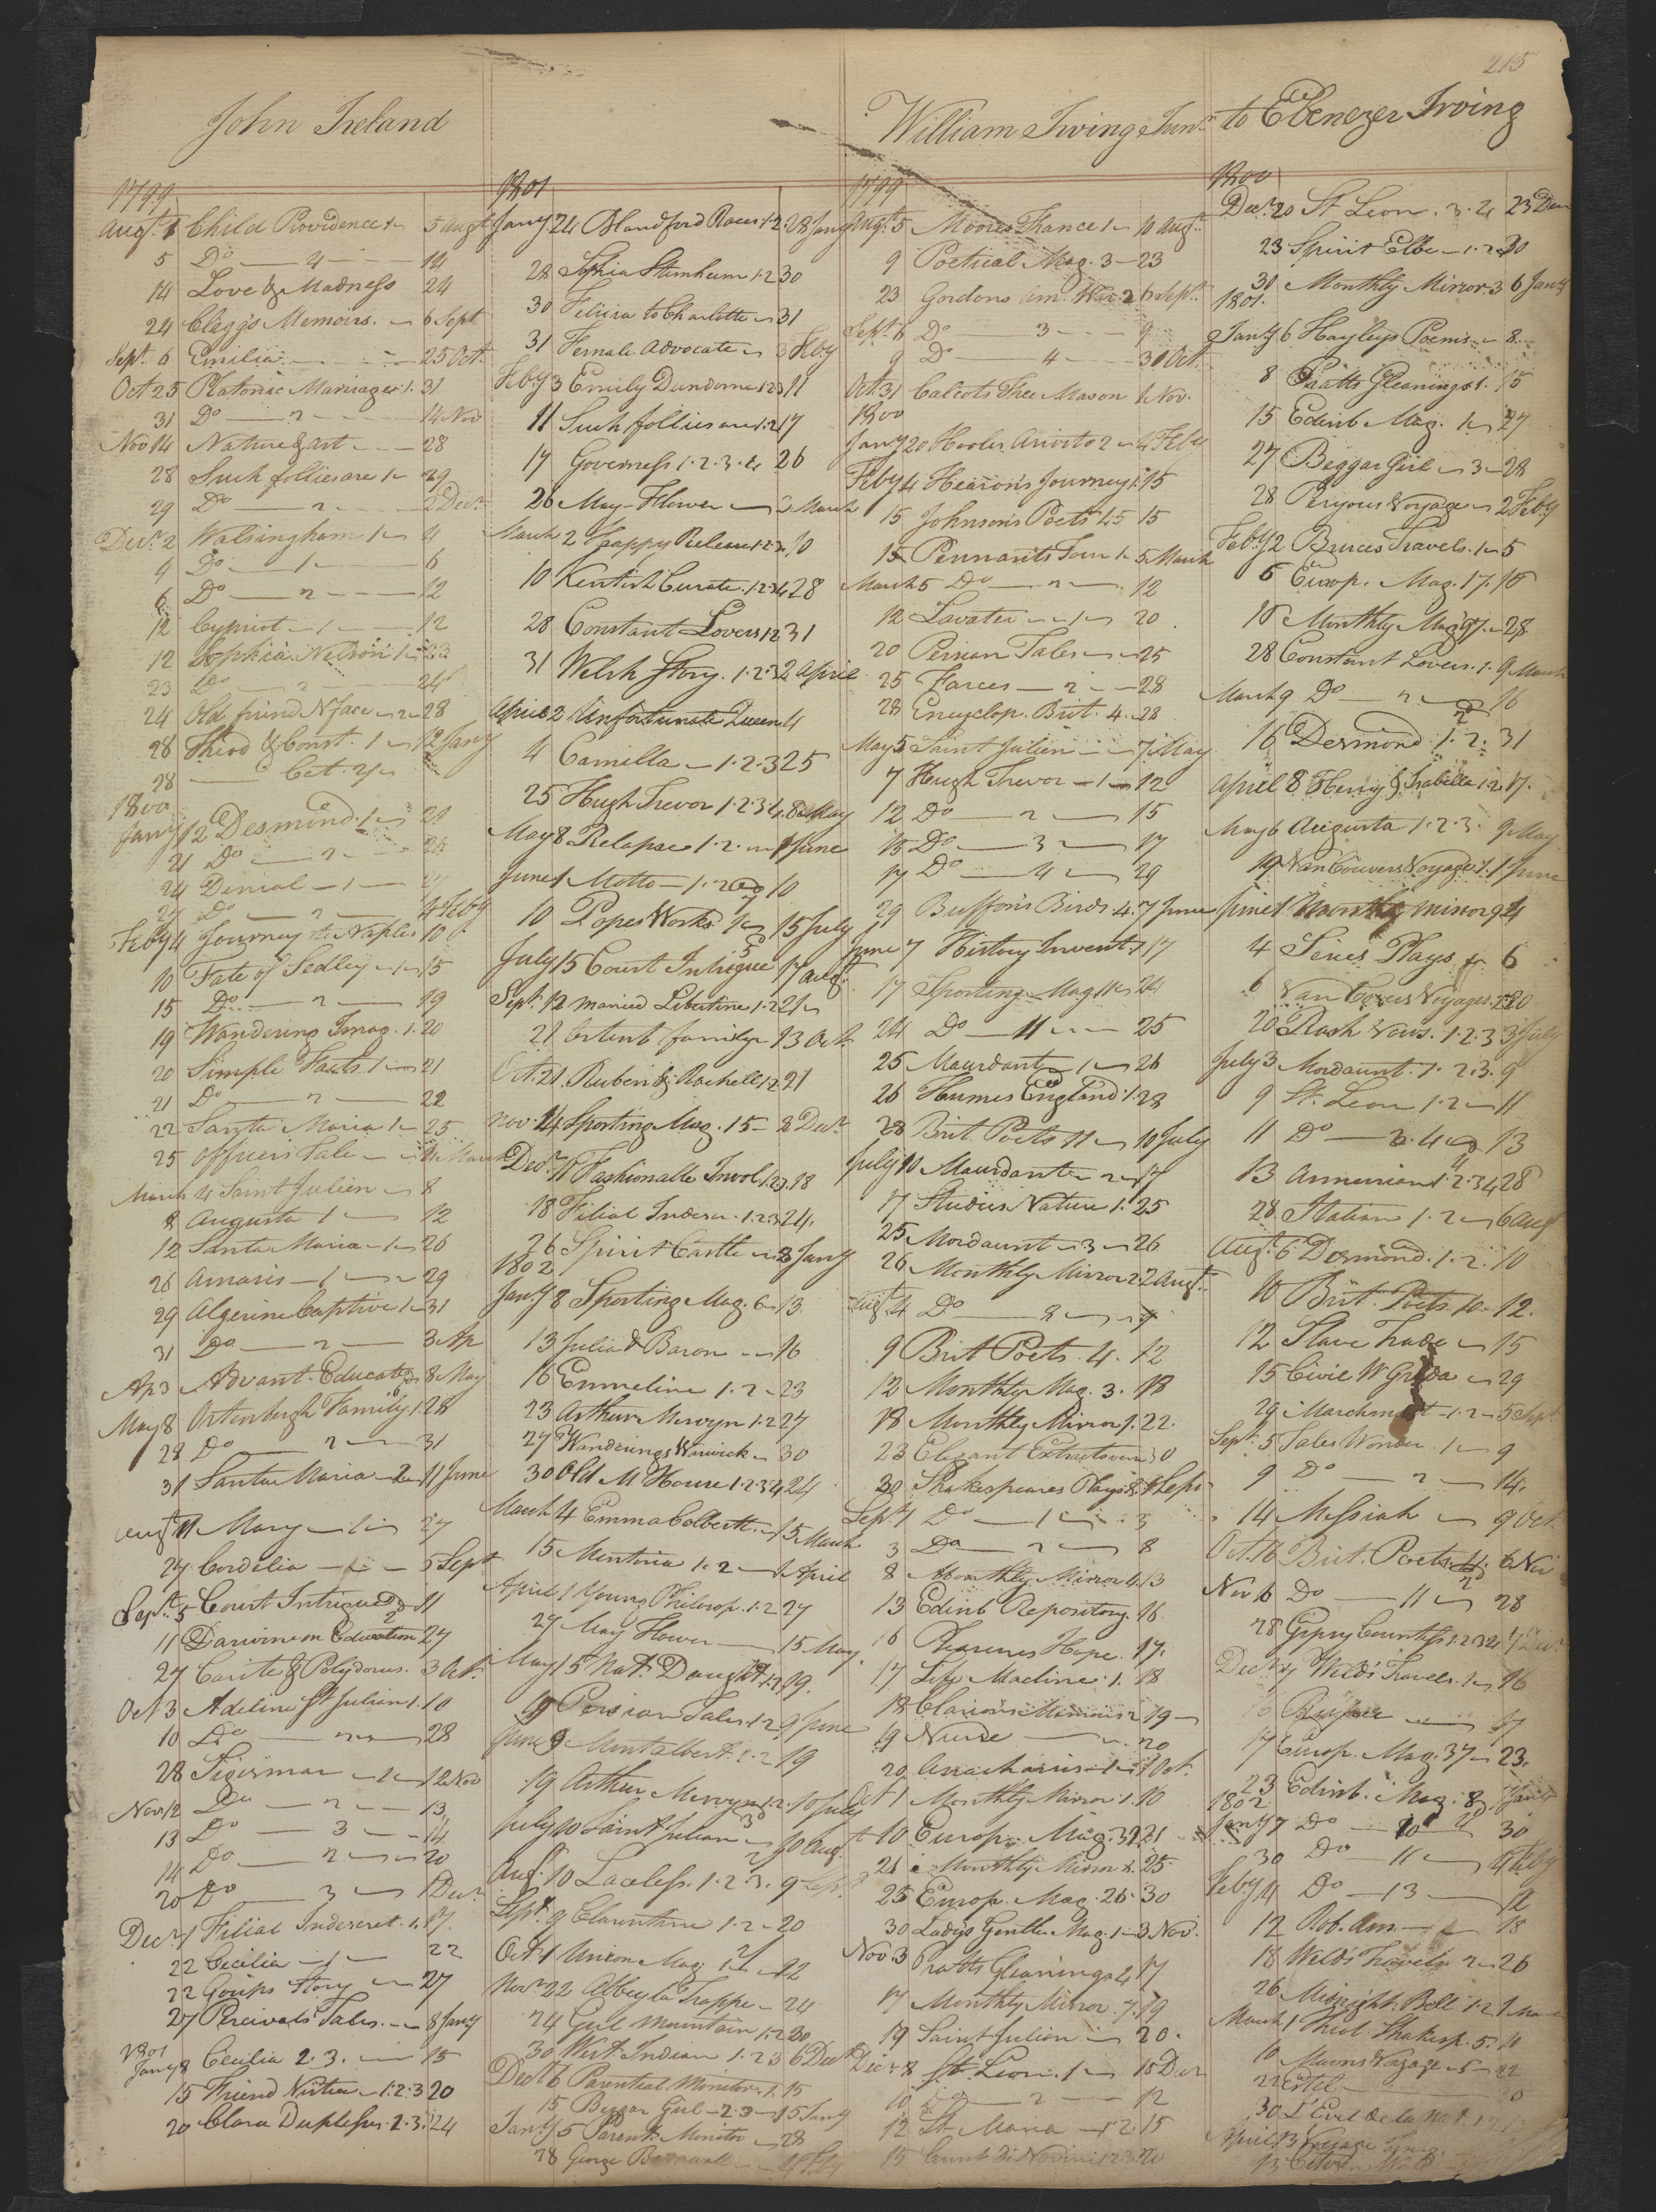 215
John Ireland
William Irving Junr to Ebenezer Irving
1799
Augt 1 Child Providence 1 5 Augt
5 Do 4 14
14 Love & Madness 24
24 Clegg's Memoirs. 6 Sept
Sept. 6 Emilia 25 Oct.
Oct 25 Platonic Marriages. 1. 31
31 Do 2 14 Nov
Nov 14 Nature & Art 28
28 Such follies are 1 29
29 Do 2 2 Decr
Decr 2 Walsingham 1 4
4 Do 1 6
6 Do 2 12
12 Cypriot 1 12
12 Sophia Nelson 1 23
23 Do 2 24
24 Old friend N face 2 28
28 Theod & Const. 1 12 Jany
28 Cat. 2
1800
Jany 12 Desmond. 1 21
21 Do 2 24
24 Denial 1 27
27 Do 2 4 Feby
Feby 4 Journey to Naples 10
10 Fate of Sedley 1 15
15 Do 2 19
19 Wandering Imag. 1. 20
20 Simple Facts. 1 21
21 Do 2 22
22 Santa Maria 1 25
25 Officers Tale 4 March
March 4 Saint Julien 8
8 Augusta 1 12
12 Santa Maria 1 26
26 Amasis 1 29
29 Algerine Captive 1 31
31 Do 2 3 Ap
Ap 3 Advant. Educat 8 May
May 8 Ortenburgh Family 1. 28
28 Do 2 31
31 Santa Maria 2 11 June
Augt 11 Mary 1 27
27 Cordelia 5 Sept
Sept. 5 Court Intrigue 2 11
11 Darwin on Education 27
27 Carite & Polydorus. 3 Oct.
Oct 3 Adeline St Julian 1. 10
10 Do 2 28
28 Sigismar 1 12 Nov
Nov 12 Do 2 13
13 Do 3 14
14 Do 2 20
20 Do 3 1 Decr
Decr 1 Filial Indescret. 1. 17.
22 Cecilia 1 22
22 Gossips Story 27
27 Percivals Tales. 8 Jany
1801
Jany 8 Cecilia 2. 3. 15
15 Friend Virtue 1. 2. 3 20
20 Clara Duplessis. 2. 3. 24
1801
Jany 24 Blandford Races. 1. 2. 28 Jany
28 Sophia Sternheim 1. 2 30
30 Felicia to Charlotte 31
31 Female Advocate 3 Feby
Feby 3 Emily Dundorne 1. 2. 3 11
11 Such follies are 1. 2 17
17 Governess 1. 2. 3. 4 26
26 May-Flower 2 March
March 2 Happy Release 1. 2. 3 10
10 Kentish Curate. 1. 2. 3. 4 28
28 Constant Lovers 1. 2 31
31 Welsh Story. 1. 2. 3 2 April
April 2 Unfortunate Queen 4
4 Camilla 1. 2. 3 25
25 Hugh Trevor 1. 2. 3. 4. 8 May
May 8 Relapse 1. 2. 1 June
June 1 Motto 1. 2 10
10 Popes Works 15 July
July 15 Court Intrigue 17 Augt.
Sept. 12 Married Libertine 1. 2 21
21 Ortenb family 13 Oct.
Oct. 21. Ruben & Rachell 1. 2 21
Nov. 24 Sporting Mag. 15 2 Decr
Decr 11 Fashionable Invol 1. 2. 3. 18
18 Filial Indescr. 1. 2. 3 24.
26 Spirit Castle 8 Jany
1802
Jany 8 Sporting Mag. 6 13.
13 Julia d Baron 16
16 Emmeline 1. 2 23
23 Arthur Mervyn 1. 2 27
27 Wanderings Warwick 30
30 Old M House 1. 2. 3. 4 24
March 4 Emma Colbert. 15 March
15 Mentoria 1. 2 1 April
April 1 Young Philosop. 1. 2 27
27 May Flower 15 May
May 15 Nat. Daught 1. 2 19.
19 Persian Tales 1. 2 9 June
June 9 Montalbert. 1. 2 19
19 Arthur Mervyn 1. 2. 10 July
July 10 Saint Julian 10 Aug.
Aug. 10 Lawless. 1. 2. 3. 9 Sept
Sept. 9 Clarentine 1. 2 20
Oct. 1 Union Mag. 1. 22
Novr 22 Abbey la Trappe 24
24 Girl Mountain 1. 2 30
30 West Indian 1. 2 3 6 Decr
Decr 6 Parental Monitor 1. 15
15 Beggar Girl 2. 3 15 Jany
Jany 5 Parents Monitor 28
28 George Barnwall
1799
Augt. 5 Moores France 1 10 Augt.
9 Poetical Mag. 3 23
23 Gordons Am. War. 2 6 Sept.
Sept. 6 Do 3 9
9 Do 4 30 Oct.
Oct. 31 Calcots Free Mason 1 Nov.
1800
Jany 20 Hooles Ariosto 2 4 Feby
Feby 4 Hearon's Journey 1. 15
15 Johnsons Poets 45 15
15 Pennants Tour 1 5 March
March 5 Do 2 12
12 Lavater 1 20
20 Persian Tales 25
25 Farces 2 28
28 Encyclop. Brit. 4. 28
May 5 Saint Julien 7 May
7 Hugh Trevor 1 12
12 Do 2 15
15 Do 3 17
17 Do 4 29
29 Buffons Birds 4. 7 June
June 7 History Invent. 1 17
17 Sporting Mag 11 24
24 Do 11 25
25 Mourdant 1 26
26 Humes England 1. 28
28 Brit Poets 11 10 July
July 10 Mourdant 2 17
17 Studies Nature 1. 25
25 Mordaunt 3 26
26 Monthly Mirror 2 2 Augt.
Augt 4 Do 8 9
9 Brit Poets. 4. 12
12 Monthly Mag. 3. 18
18 Monthly Mirror 1. 22.
23 Elegant Extracts verse 30
30 Shakespeares Plays 8. 1 Sept
Sept 1 Do 1 3
3 Do 2 8
8 Monthly Mirror 4. 13
13 Edinb Repository. 16.
16 Pleasures Hope. 17.
17 Life Macline. 1. 18
18 Clarions Memoirs 2 19
19 Nurse 20
20 Anacharsis 1 1 Oct.
Oct 1 Monthly Mirror. 1. 10
10 Europ. Mag. 32 21
21 Monthly Mirror 2. 25
25 Europ. Mag. 26. 30
30 Ladys Gentle. Mag. 1 3 Nov.
Nov. 3 Pratts Gleanings 2 17
17 Monthly Mirror. 7. 19
19 Saint Julien 20.
Decr 8 St. Leon. 1 10 Decr
10 Do 2 12
12 St. Maria 1. 2. 15
15 Count di Novini 1. 2. 3. 20
1800
Decr. 20 St Leon. 3. 4 23 Decr
23 Spirit Elbe 1. 2 30
30 Monthly Mirror 3 6 Jany
1801.
Jany 6 Hayleys Poems 8.
8 Pratts Gleanings 1. 15
15 Edinb Mag. 1 27
27 Beggar Girl 3 28
28 Peryous Voyage 2 Feby
Feby 2 Bruces Travels. 1 5
5 Europ. Mag. 17. 16
16 Monthly Mag 7. 28
28 Constant Lovers. 1. 9 March
March 9 Do 2 16
16 Desmond 1. 2. 31
April 8 Henry & Isabella 1. 2 17.
May 6 Augusta 1. 2. 3. 9 May
19 VanCouvers Voyage 1. 1 June
June 1 Month Mirror 9 4
4 Series Plays 6
6 Van Couvers Voyages. 2 20
20 Rash Vows. 1. 2. 3 3 July
July 3 Mordaunt. 1. 2. 3. 9
9 St. Leon 1. 2 11
11 Do 3. 4 13
13 Armenian 1. 2. 3 4 28
28 Italian 1. 2 6 Aug
Augt. 6 Desmond. 1. 2. 10
10 Brit. Poets. 10 12.
12 Slave Trade 15
15 Civil W Grenada 29
29 Marchmont 1. 2 5 Sept.
Sept. 5 Tales Wonder. 1 9
9 Do 2 14.
14 Messiah 9 Oct.
Oct. 16 Brit. Poets 6 Nov
Nov 6 Do 11 28
28 Gipsy Countess 1. 2. 3. 4 7 Decr
Decr. 7 Weld's Travels. 1 16
16 17
17 Europ. Mag. 37 23.
23 Edinb. Mag. 8 7 Jany
1802
Jany 7 Do 10 30
30 Do 11 4 Feby
Feby 4 Do 13 12
12 Rob. Am. 18
18 Weld's Travels 2 26
26 Midnight Bell 1. 2 1 Mar
March 1 Theol. Shakesp. 5. 10
10 Mavors Voyages 5 22
22 Estel
30 L'Evel de la Nat.
April 13 Voyage
13